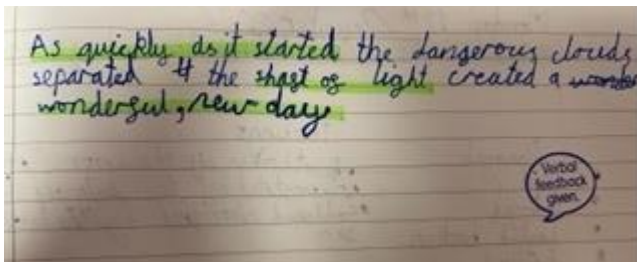 As quickly as it started the dangerous clouds
separated # the shast of light created a
wonderful, new day
Verbal
feedback
given.